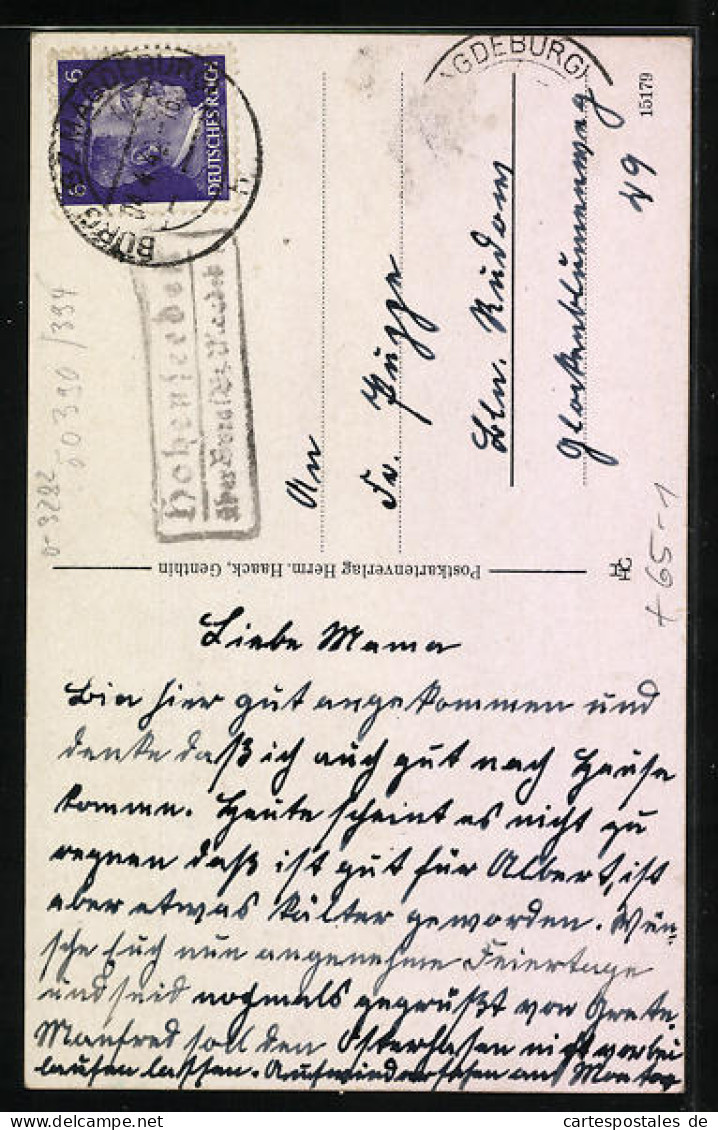 6 6
DEUTSCHES REICH
BURG (BZ MAGDEBURG)
AGDEBURG)
Hohenseeden
über Burg (Bz. Magdeb
15179
An
Fr. Puppe
Bln. Rudow
Glockenblumenweg
49
0-3282
50390/394
+65-1
Postkartenverlag Herm. Haack, Genthin
Liebe Mama
Bin hier gut angekommen und
denke daß ich auch gut nach Hause
komme. Heute scheint es nicht zu
regnen daß ist gut für Albert, ist
aber etwas kälter geworden. Wün-
sche Euch nun angenehme Feiertage
und seid nochmals gegrüßt von Grete.
Manfred soll den Osterhasen nicht vorbei
laufen lassen. Aufwiedersehen am Montag
www.cartespostales.de